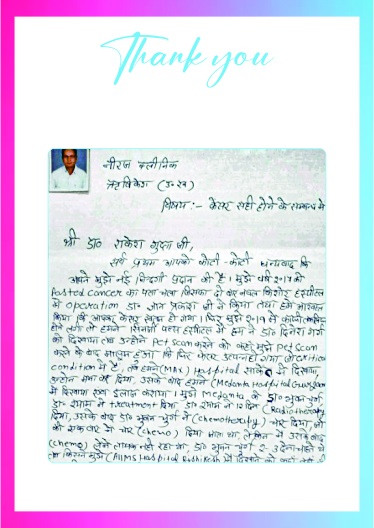 Thank you
नीरज क्लीनिक
ऋषिकेश (उ०ख०)
विषय :- केंसर सही होने के सम्बन्ध में
श्री डा० राकेश गुप्ता जी,
सर्व प्रथम आपको कोटी-कोटी धन्यवाद कि
आपने मुझे नई जिन्दगी प्रदान की है। मुझे वर्ष २०१७ को
cancer का पता चला जिसका दो बार नवल किशोर हस्पीटल
में operation डा० ज्ञान प्रकाश जी ने किया तथा हमें
किया कि आपका केंसर मुक्त हो गया। फिर मुझे २०१९ में
होने लगी तो हमने हस्पीटल में हम ने डा० दिनेश गर्ग
को दिखाया तथा उन्होंने Pet Scan करने को कहा मुझे Pet Scan
करने के बाद मालूम हुआ कि फिर केंसर उत्पन्न हो गया जो critical
condition में है। हमने (MAX) Hospital साकेत में दिखाया,
उन्होंने मना कर दिया, उसके बाद हमने (Medanta Hospital Gurugram
में दिखाया तथा ईलाज कराया। मुझे Medanta के डा०
डा० श्याम ने treatment दिया डा० श्याम ने (Radiotherapy
दिया, उसके बाद डा० ने (Chemotherapy) दिया, जो
की एक बार में (chemo) दिया जाता था लेकिन में उसके बाद
(chemo) लेने लायक नहीं रहा था, डा० २-३ देना चाहते थे
मुझे (AIIMS Hospital Rishikesh में दिखाने को